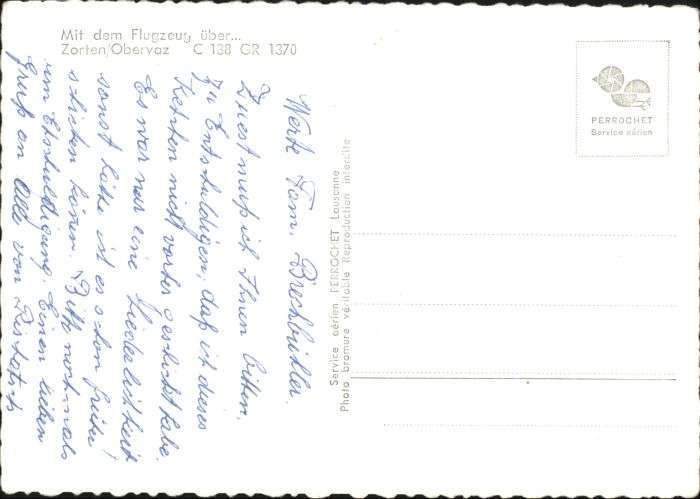 Mit dem Flugzeug über...
Zorten/Obervaz C 138 GR 1370
PERROCHET
Service aérien
Service aérien PERROCHET Lausanne
Photo bromure véritable Reproduction interdite
Werte Fam. Brechbühler.
Zuest muß ich Ihnen bitten,
zu Entschuldigen, daß ich dieses
Kärtchen nicht vorher geschickt habe.
Es war nur eine Liederlichkeit
sonst hätte ich es schon früher
schicken können. Bitte nochmals
um Entschuldigung. Einen lieben
Gruß an Alle von